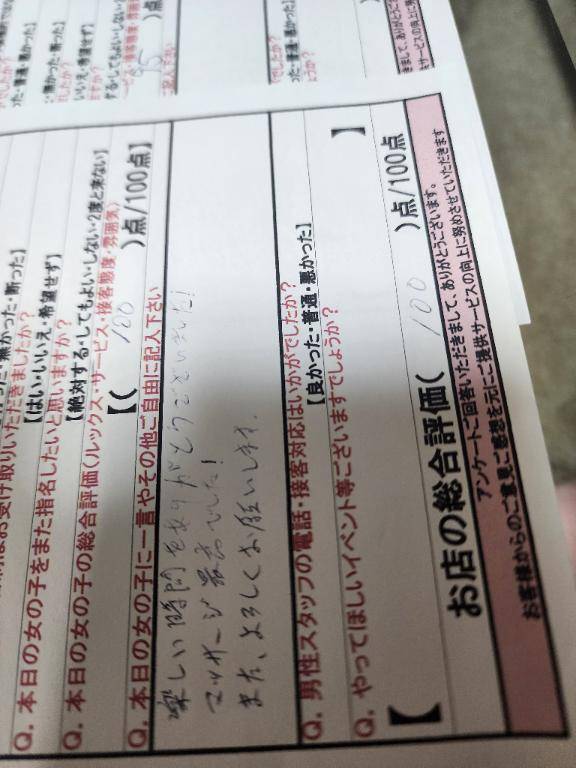 お受け取りいただきましたか?
無かった・断った】
Q. 本日の女の子をまた指名したいと思いますか?
【はい・いいえ・希望せず】
【絶対する・してもよい・しない・2度と来ない】
Q. 本日の女の子の総合評価(ルックス・サービス・接客態度・雰囲気)
【( 100 )点/100点】
Q. 本日の女の子に一言やその他ご自由に記入下さい
楽しい時間をありがとうございました!
マッサージ最高でした!
また、よろしくお願いします。
Q. 男性スタッフの電話・接客対応はいかがでしたか?
【良かった・普通・悪かった】
Q. やってほしいイベント等ございますでしょうか?
【 】
お店の総合評価( 100 )点/100点
アンケートご回答いただきまして、ありがとうございます。
お客様からのご意見ご感想を元にご提供サービスの向上に努めさせていただきます